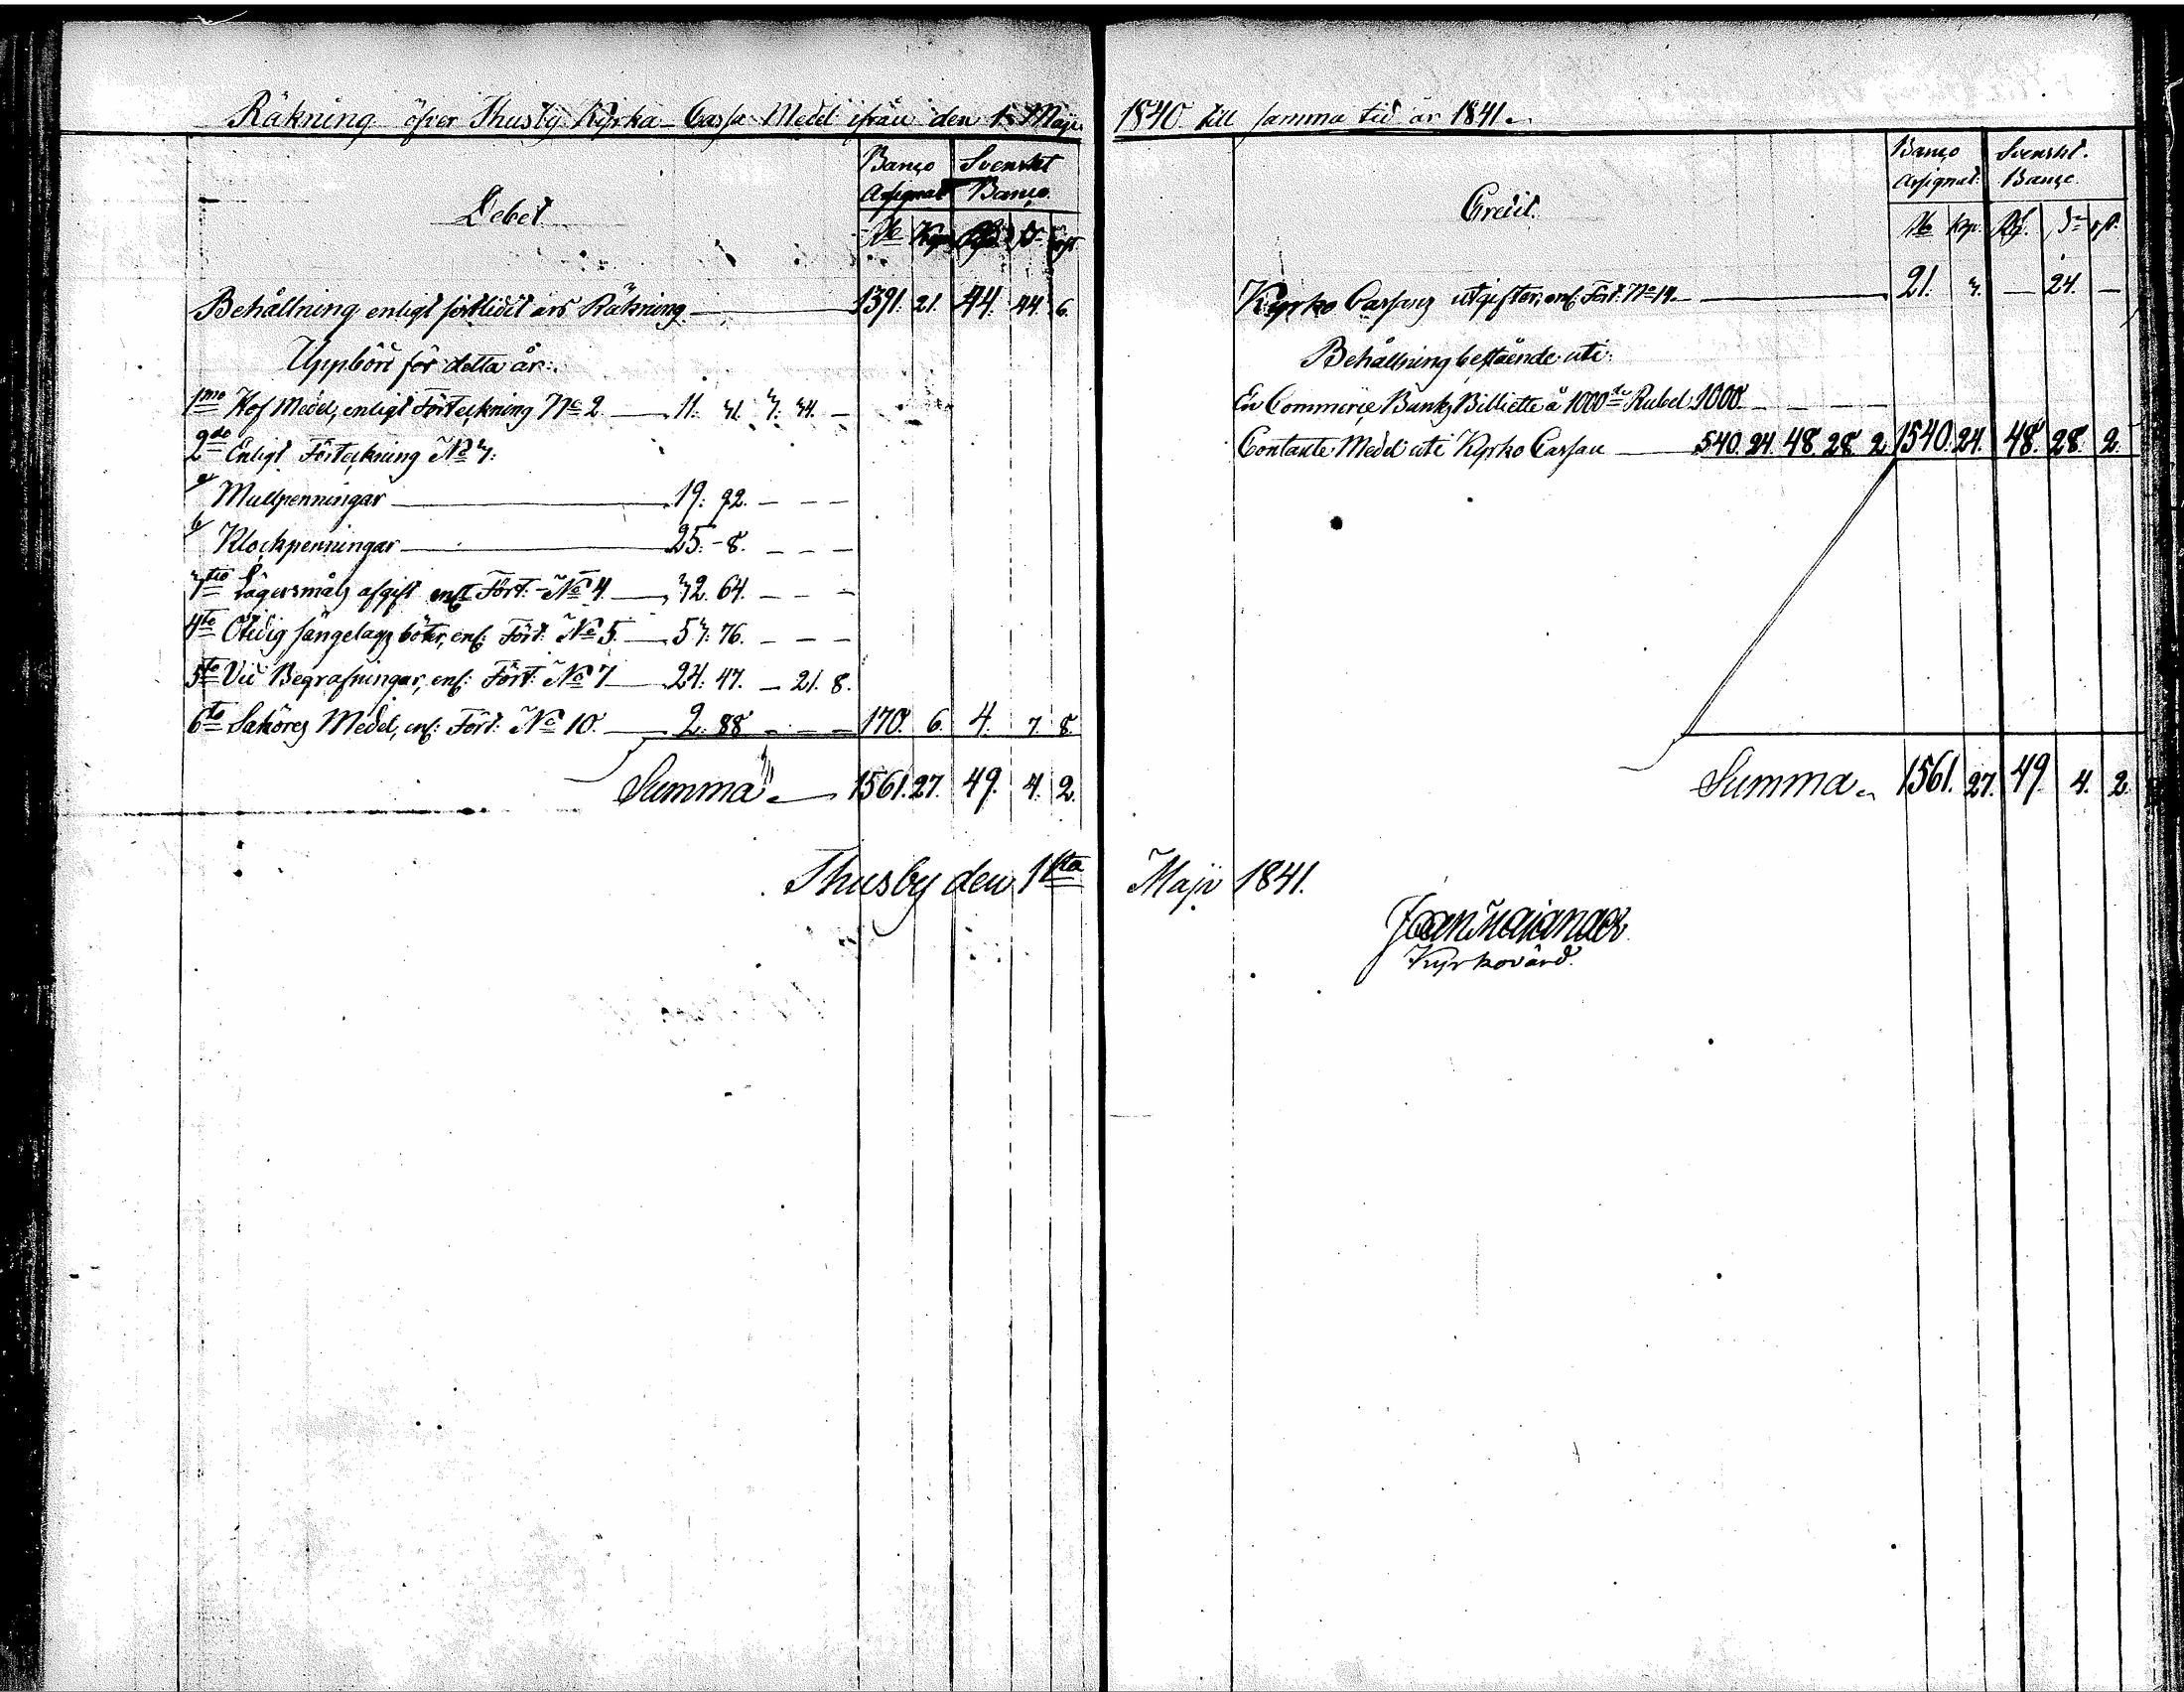 Räkning öfver Thusby Kyrka Cassa Medel ifrån den 1 Maji
Debet
Banco Svenskt
Assignat Banco
Behållning enligt förtlidit års Räkning 1391. 21. 44. 44. 6.
Uppbörd för detta år:
1mo Hof Medel, enligt Förteckning No 2. 11. 31. 3. 34. —
2do Enligt Förteckning No 3.
a/ Mullpenningar 19. 92. — — —
b/ Klockpenningar 25. 8. — — —
3tio Lägersmåls afgift enl. Fört. No 4. 32. 64. — — —
4to Otidig sängelags böter, enl. Fört. No 5. 53. 76. — — —
5to Vid Begrafningar, enl. Fört. No 7 24. 47. — 21. 8.
6to Saköres Medel, enl. Fört. No 10. 2. 88 — — — 170. 6. 4. 7. 8.
Summa 1561. 27. 49. 4. 2.
Thusby den 1sta
1840 till samma tid år 1841.
Credit.
Banco Svenskt.
Assignat. Banco.
Ro Kop. Rd. s. rst.
Kyrko Cassans utgifter, enl. Fört. No 14. 21. 3. — 24. —
Behållning bestående uti:
En Commercie Banks Billiette à 1000de Rubel 1000 — — — —
Contante Medel uti Kyrko Cassan 540. 24. 48. 28. 2. 1540. 24. 48. 28. 2.
Summa 1561. 27. 49. 4. 2.
Maji 1841.
Kyrkovärd.